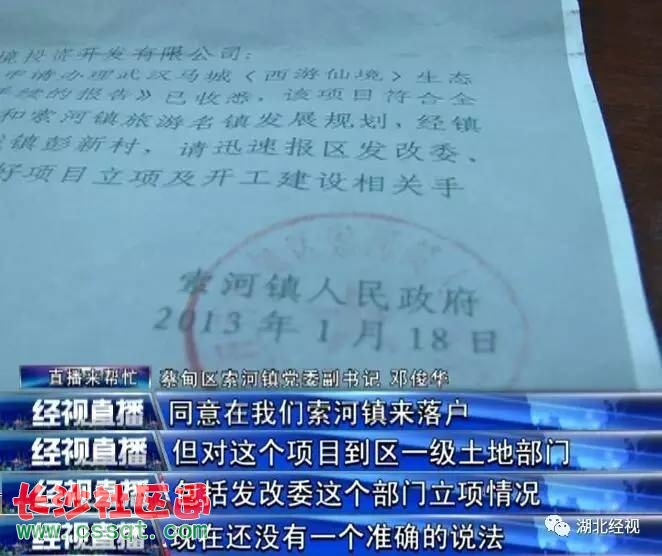 境投资开发有限公司:
申请办理武汉马城《西游仙境》生态
手续的报告》已收悉,该项目符合全
和索河镇旅游名镇发展规划,经镇
镇彭新村,请迅速报区发改委、
好项目立项及开工建设相关手
索河镇人民政府
2013年1月18日
直播来帮忙 蔡甸区索河镇党委副书记 邓俊华
经视直播 同意在我们索河镇来落户
经视直播 但对这个项目到区一级土地部门
经视直播 包括发改委这个部门立项情况
经视直播 现在还没有一个准确的说法
长沙社区通
www.cssqt.com
湖北经视